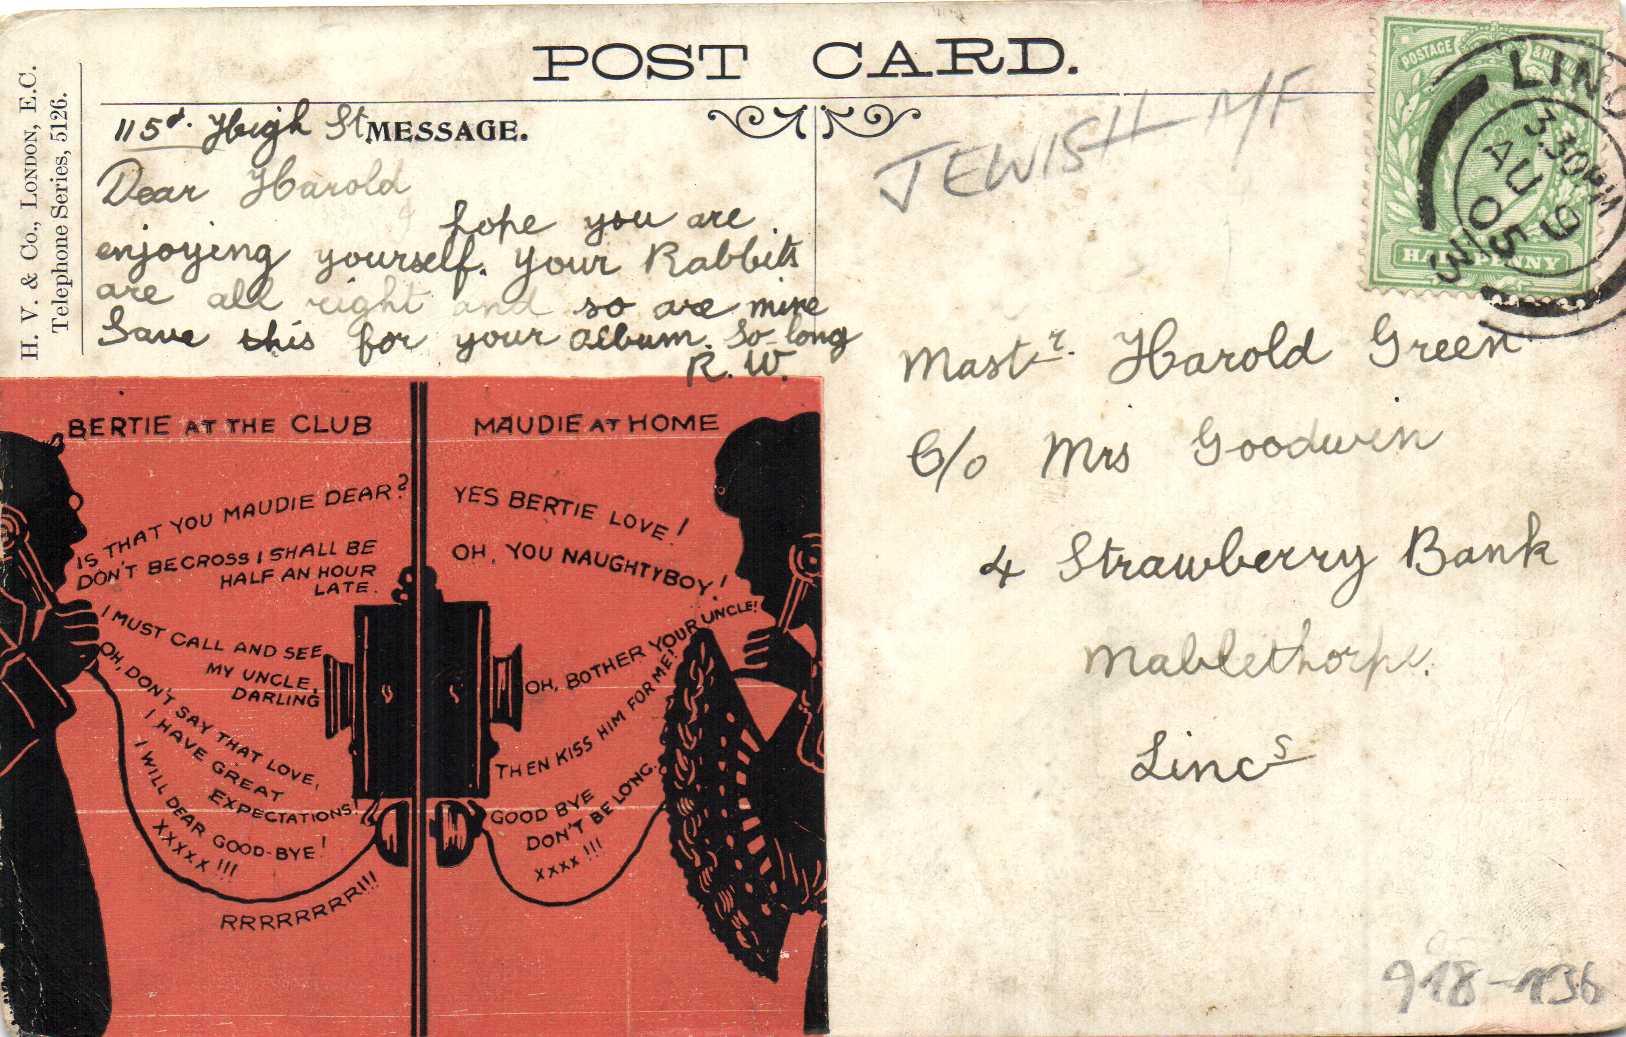 POST CARD.
H. V. & Co., LONDON, E.C.
Telephone Series, 5126.
115d. High St
MESSAGE.
Dear Harold
hope you are
enjoying yourself. Your Rabbits
are all right and so are mine
Save this for your album. So-long
R. W.
JEWISH M/F
POSTAGE & REVENUE
HALFPENNY
LINC
3.30PM
AU 9
05
Mastr. Harold Green
C/o Mrs Goodwin
4 Strawberry Bank
Mablethorpe.
Lincs
918-1136
BERTIE AT THE CLUB
IS THAT YOU MAUDIE DEAR?
DON'T BE CROSS I SHALL BE
HALF AN HOUR
LATE.
I MUST CALL AND SEE
MY UNCLE,
DARLING
OH, DON'T SAY THAT LOVE,
I HAVE GREAT
EXPECTATIONS!
I WILL DEAR GOOD-BYE!
XXXXX !!!
RRRRRRRR!!!
MAUDIE AT HOME
YES BERTIE LOVE!
OH, YOU NAUGHTY BOY!
OH, BOTHER YOUR UNCLE!
THEN KISS HIM FOR ME!
GOOD BYE
DON'T BE LONG.
XXXX !!!